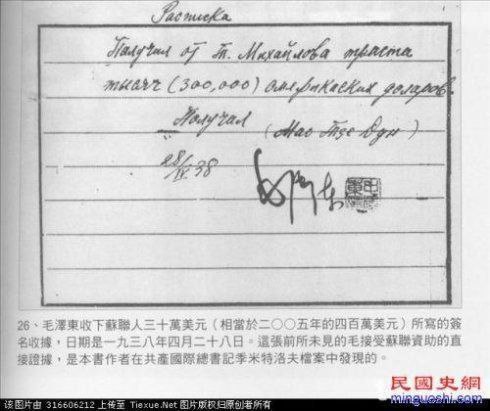 Расписка
Получил от т. Михайлова триста
тысяч (300,000) американских доларов.
Получил (Мао Тзе Дун)
28/IV 38
26、毛澤東收下蘇聯人三十萬美元（相當於二〇〇五年的四百萬美元）所寫的簽
名收據，日期是一九三八年四月二十八日。這張前所未見的毛接受蘇聯資助的直
接證據，是本書作者在共產國際總書記季米特洛夫檔案中發現的。
民國史網
minguoshi.com
该图片由 316606212 上传至 Tiexue.Net 图片版权归原创者所有